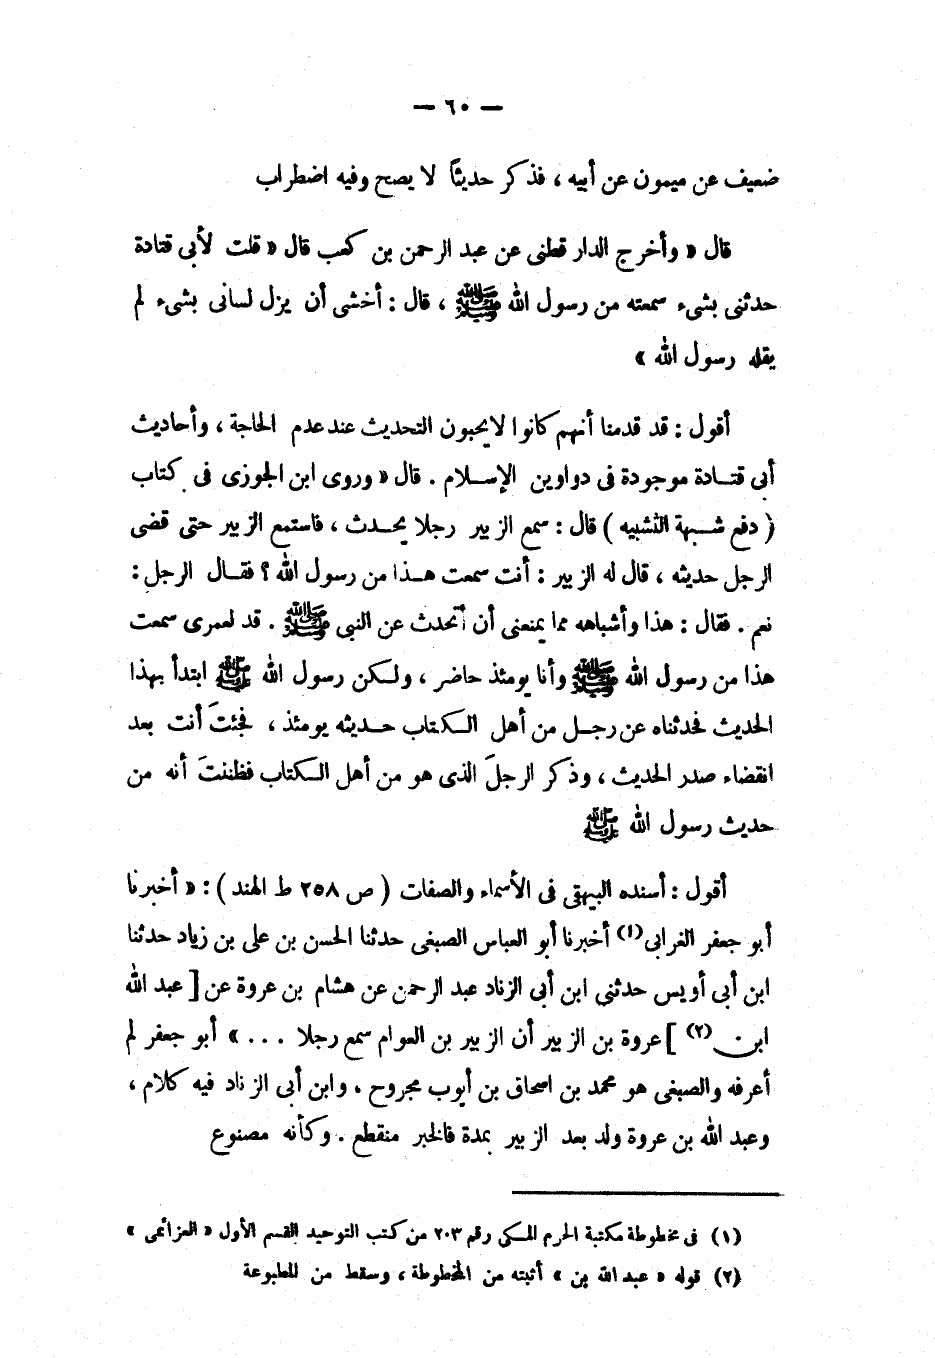 — ٦٠ —
ضعيف عن ميمون عن أبيه ، فذكر حديثاً لا يصح وفيه اضطراب
قال « وأخرج الدار قطنى عن عبد الرحمن بن كعب قال « قلت لأبى قتادة
حدثنى بشىء سمعته من رسول الله ﷺ ، قال : أخشى أن يزل لسانى بشىء لم
يقله رسول الله »
أقول : قد قدمنا أنهم كانوا لايحبون التحديث عند عدم الحاجة ، وأحاديث
أبى قتـادة موجودة فى دواوين الإسـلام . قال « وروى ابن الجوزى فى كتاب
( دفع شـبهة التشبيه ) قال : سمع الزبير رجلا يحـدث ، فاستمع الزبير حتى قضى
الرجل حديثه ، قال له الزبير : أنت سمعت هـذا من رسول الله ؟ فقـال الرجل :
نعم . فقال : هذا وأشباهه مما يمنعنى أن أتحدث عن النبى ﷺ . قد لعمرى سمعت
هذا من رسول الله ﷺ وأنا يومئذ حاضر ، ولـكن رسول الله ﷺ ابتدأ بهذا
الحديث فحدثناه عن رجـل من أهل الـكتاب حـديثه يومئذ ، فجئتَ أنت بعد
انقضاء صدر الحديث ، وذكر الرجلَ الذى هو من أهل الـكتاب فظننتَ أنه من
حديث رسول الله ﷺ
أقول : أسنده البيهقى فى الأسماء والصفات ( ص ٢٥٨ ط الهند ) : « أخبرنا
أبو جعفر الغرابى(١) أخبرنا أبو العباس الصبغى حدثنا الحسن بن على بن زياد حدثنا
ابن أبى أويس حدثنى ابن أبى الزناد عبد الرحمن عن هشام بن عروة عن [ عبد الله
ابن (٢) ] عروة بن الزبير أن الزبير بن العوام سمع رجلا ... » أبو جعفر لم
أعرفه والصبغى هو محمد بن اسحاق بن أيوب مجروح ، وابن أبى الزناد فيه كلام ،
وعبد الله بن عروة ولد بعد الزبير بمدة فالخبر منقطع . وكأنه مصنوع
(١) فى مخطوطة مكتبة الحرم المـكى رقم ٢٠٣ من كتب التوحيد القسم الأول « العزائمى »
(٢) قوله « عبد الله بن » أثبته من المخطوطة ، وسقط من المطبوعة